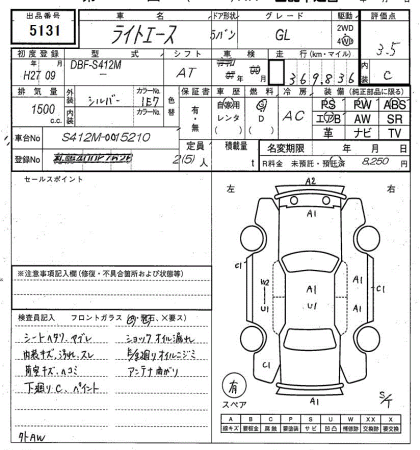 出品番号 車名 ドア形状 グレード 駆動 評価点
5131 ライトエース 5バン GL 2WD 4WD 3.5
初度登録 型式 シフト 車検 走行(km・マイル) 内装
年 月 DBF-S412M AT 年 月 369,836 C
H27 09 —
排気量 外装 シルバー カラーNo. 1E7 色替 保証書 車歴 燃料 冷房 装備(純正部品に限る)
1500 c.c. 内装 カラーNo. 有・無 自家用 レンタ G D AC PS PW ABS
( ) エアB AW SR
革 ナビ TV
車台No S412M-0015210 定員 積載量 名変期限 年 月 日
登録No 2(5)人 t R料金 未預託・預託済 8,250 円
セールスポイント
左 右
A2
A1
C1 W2 A1 A1 U1 A1 C1
C1 A1
A1
※注意事項記入欄(修復・不具合箇所および状態等)
検査員記入 フロントガラス(キズ・飛石、×要ス)
シートヘタリ、ヤブレ ショックオイル漏れ
内装キズ、汚れ、スレ
荷室キズ、ヘコミ アンテナ曲がり
下廻りC、ペイント
外AW
有
スペア
S/T
A B C P S U W X XX
線キズ 要板金 腐蝕 要塗装 サビ 凹凸 補修跡 要交換 交換済